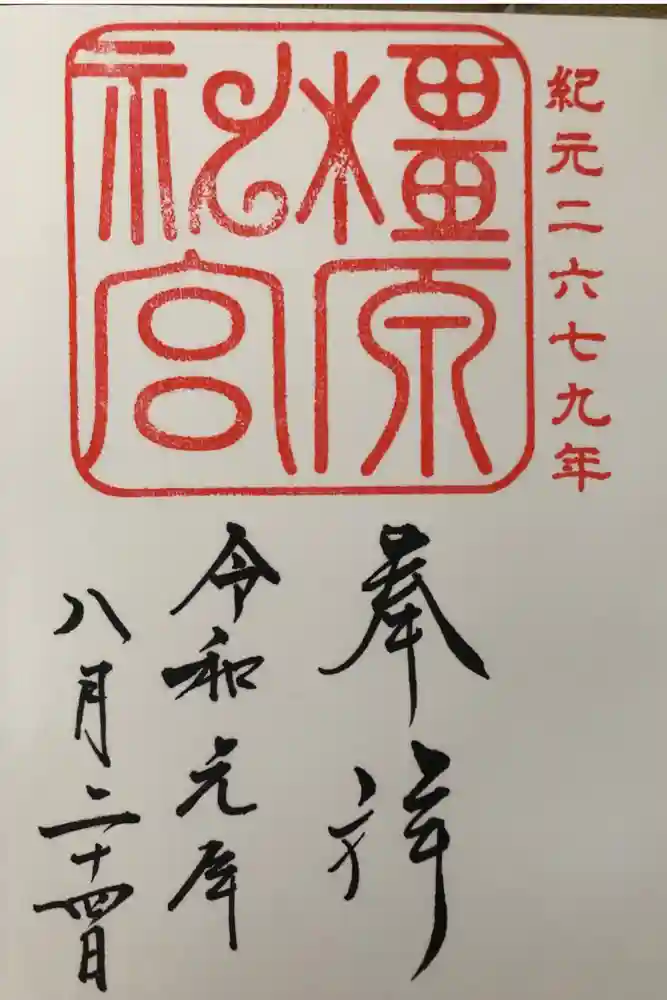 紀元二六七九年
橿原
神宮
奉拝
令和元年
八月二十四日